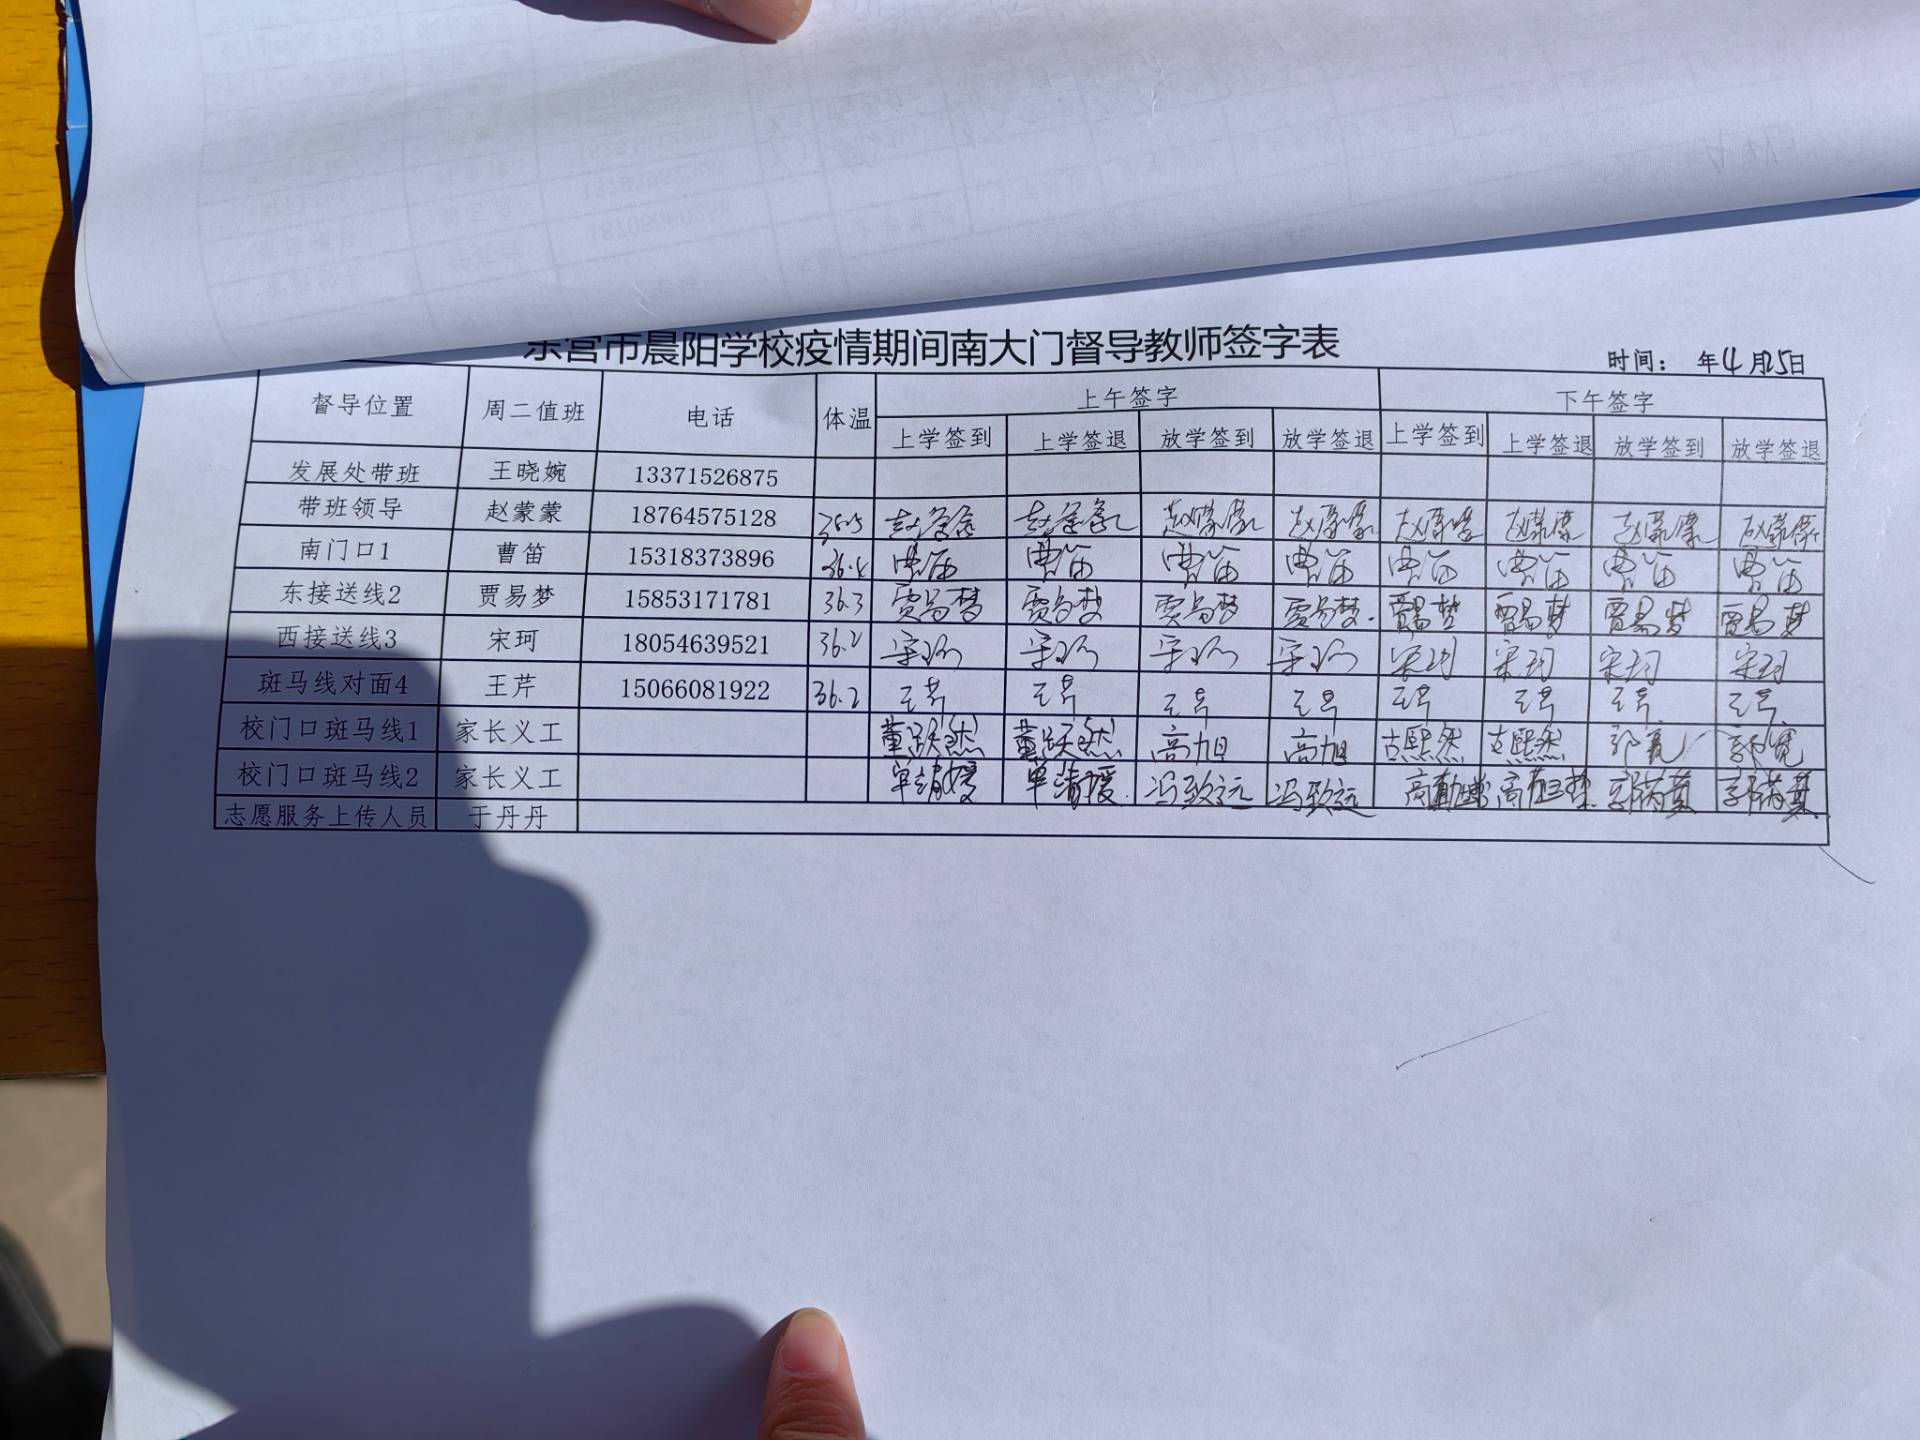 东营市晨阳学校疫情期间南大门督导教师签字表
时间： 年4月25日
督导位置 周二值班 电话 体温 上午签字 下午签字
上学签到 上学签退 放学签到 放学签退 上学签到 上学签退 放学签到 放学签退
发展处带班 王晓婉 13371526875
带班领导 赵蒙蒙 18764575128 赵蒙蒙 赵蒙蒙 赵蒙蒙 赵蒙蒙 赵蒙蒙 赵蒙蒙 赵蒙蒙 赵蒙蒙
南门口1 曹笛 15318373896 36.4 曹笛 曹笛 曹笛 曹笛 曹笛 曹笛 曹笛 曹笛
东接送线2 贾易梦 15853171781 36.3 贾易梦 贾易梦 贾易梦 贾易梦 贾易梦 贾易梦 贾易梦 贾易梦
西接送线3 宋珂 18054639521 36.2 宋珂 宋珂 宋珂 宋珂 宋珂 宋珂 宋珂 宋珂
斑马线对面4 王芹 15066081922 36.2 王芹 王芹 王芹 王芹 王芹 王芹 王芹 王芹
校门口斑马线1 家长义工 董跃然 董跃然 高旭 高旭 古熙然 古熙然
校门口斑马线2 家长义工 冯致远 冯致远
志愿服务上传人员 于丹丹